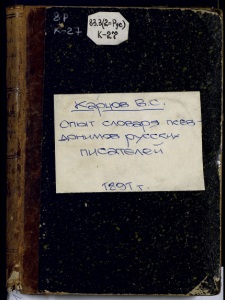 8Р
К-27
83.3(2=Рус)
К-27
Карцов В.С.
Опыт словаря псев-
донимов русских
писателей
1891 г.